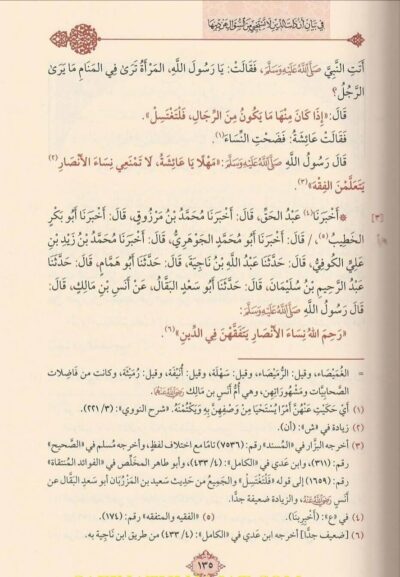 أَتَتِ النَّبِيَّ صَلَّىاللَّهُعَلَيْهِوَسَلَّمَ، فَقَالَتْ: يَا رَسُولَ اللَّهِ، المَرْأَةُ تَرَىٰ فِي المَنَامِ مَا يَرَىٰ
الرَّجُلُ؟
قَالَ: «إِذَا كَانَ مِنْهَا مَا يَكُونُ مِنَ الرِّجَالِ، فَلْتَغْتَسِلْ».
فَقَالَتْ عَائِشَةُ: فَضَحْتِ النِّسَاءَ(١).
قَالَ رَسُولُ اللَّهِ صَلَّىاللَّهُعَلَيْهِوَسَلَّمَ: «مَهْلًا يَا عَائِشَةُ، لَا تَمْنَعِي نِسَاءَ الأَنْصَارِ (٢)
يَتَعَلَّمْنَ الفِقْهَ»(٣).
[٣] * أَخْبَرَنَا(٤) عَبْدُ الحَقِّ، قَالَ: أَخْبَرَنَا مُحَمَّدُ بْنُ مَرْزُوقٍ، قَالَ: أَخْبَرَنَا أَبُو بَكْرٍ
الخَطِيبُ(٥)، / قَالَ: أَخْبَرَنَا أَبُو مُحَمَّدٍ الجَوْهَرِيُّ، قَالَ: أَخْبَرَنَا مُحَمَّدُ بْنُ زَيْدِ بْنِ
عَلِيٍّ الكُوفِيُّ، قَالَ: حَدَّثَنَا عَبْدُ اللَّهِ بْنُ نَاجِيَةَ، قَالَ: حَدَّثَنَا أَبُو هَمَّامٍ، قَالَ: حَدَّثَنَا
عَبْدُ الرَّحِيمِ بْنُ سُلَيْمَانَ، قَالَ: حَدَّثَنَا أَبُو سَعْدٍ البَقَّالُ، عَنْ أَنَسِ بْنِ مَالِكٍ، قَالَ:
قَالَ رَسُولُ اللَّهِ صَلَّىاللَّهُعَلَيْهِوَسَلَّمَ:
«رَحِمَ اللَّهُ نِسَاءَ الأَنْصَارِ يَتَفَقَّهْنَ فِي الدِّينِ»(٦).
= الغُمَيْصَاء، وقيل: الرُّمَيْصَاء، وقيل: سَهْلَة، وقيل: أُنَيْفَة، وقيل: رُمَيْثَة، وكانت من فَاضِلات
الصحابيَّات ومَشْهُورَاتِهن، وهي أُمُّ أَنَس بن مَالك رَضِيَاللَّهُعَنْهُ.
(١) أي حَكَيْتِ عَنْهُنَّ أَمْرًا يُسْتَحْيَا مِنْ وَصْفِهِنَّ بِهِ وَيَكْتُمْنَهُ. «شرح النووي»: (٢٢١/٣).
(٢) زيادة في «ش»: (أن).
(٣) أخرجه البزَّار في «المُسند» رقم: (٧٥٣٦) تامًا مع اختلاف لفظٍ، وأخرجه مُسلم في «الصَّحيح»
رقم: (٣١١)، وابن عَدي في «الكامل»: (٤/ ٤٣٣)، وأبو طاهر المخلِّص في «الفوائد المُنتقاة»
رقم: (١٦٥٩) إلى قوله «فَلْتَغْتَسِلْ» والجَميع من حَديث سَعيد بن المَرْزُبَان أبو سَعد البَقَّال عن
أَنسٍ رَضِيَاللَّهُعَنْهُ، والزيادة ضعيفة جدًّا.
(٤) في «ع»: (أَخْبِرِينَا). (٥) «الفقيه والمتفقه» رقم: (١٧٤).
(٦) [ضعيف جدًّا] أخرجه ابن عَدي في «الكامل»: (٤/ ٤٣٣) من طريق ابن نَاجية به.
١٣٥